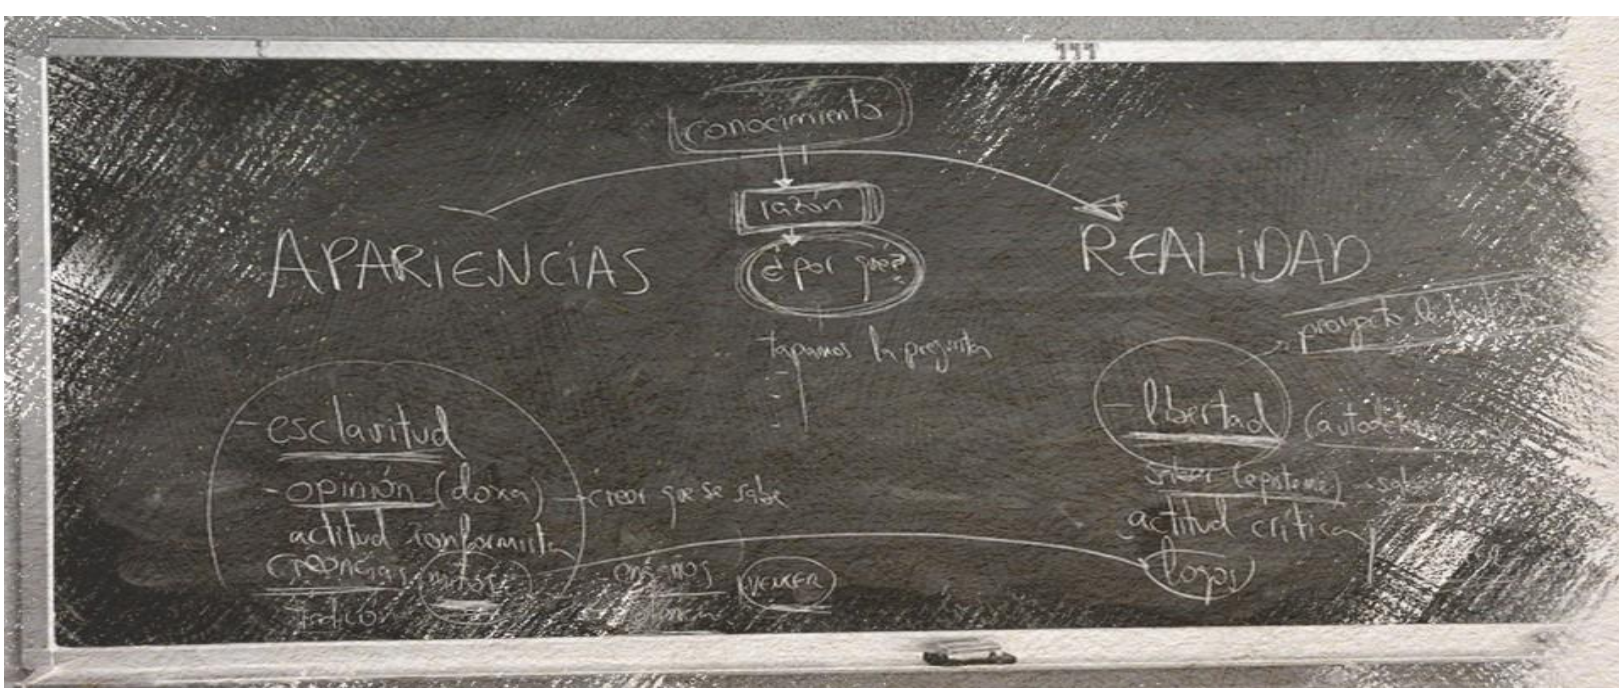 conocimiento
razón
¿por qué?
APARIENCIAS
REALIDAD
tapamos la pregunta
proyecto de
- esclavitud
- opinión (doxa) → creer que se sabe
actitud conformista
creencias mitos
engaños VENCER
- libertad
saber (episteme)
actitud crítica
logos